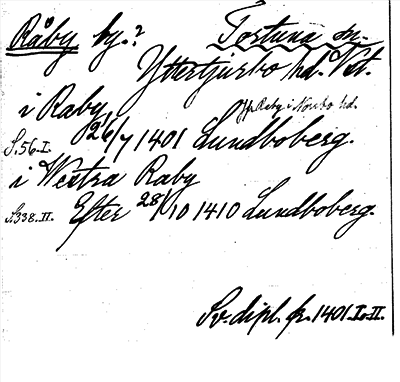 Råby by.? Tortuna sn.
Yttertjurbo hd. Vst.
i Raby
Jfr Raby i Norbo hd.
S. 56. I. 26/7 1401 Lundboberg.
i Westra Raby
S. 338. II. Efter 28/10 1410 Lundboberg.
Sv. dipl. fr. 1401. I. II.